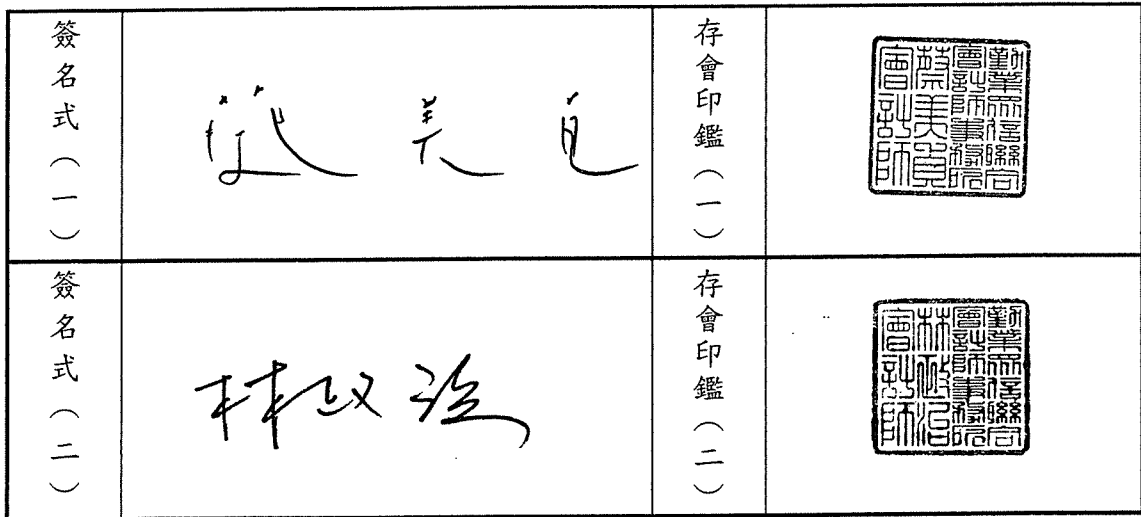 簽名式（一）
蔡美貞
存會印鑑（一）
勤業眾信聯合
會計師事務所
蔡美貞
會計師
簽名式（二）
林政治
存會印鑑（二）
勤業眾信聯合
會計師事務所
林政治
會計師